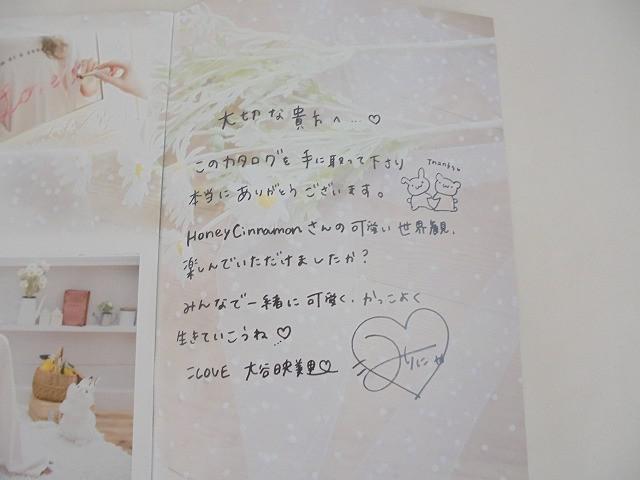 大切な貴方へ…♡
このカタログを手に取って下さり
本当にありがとうございます。
Thanks
HoneyCinnamonさんの可愛い世界観、
楽しんでいただけましたか?
みんなで一緒に可愛く、かっこよく
生きていこうね…♡
=LOVE 大谷映美里♡
みりにゃ